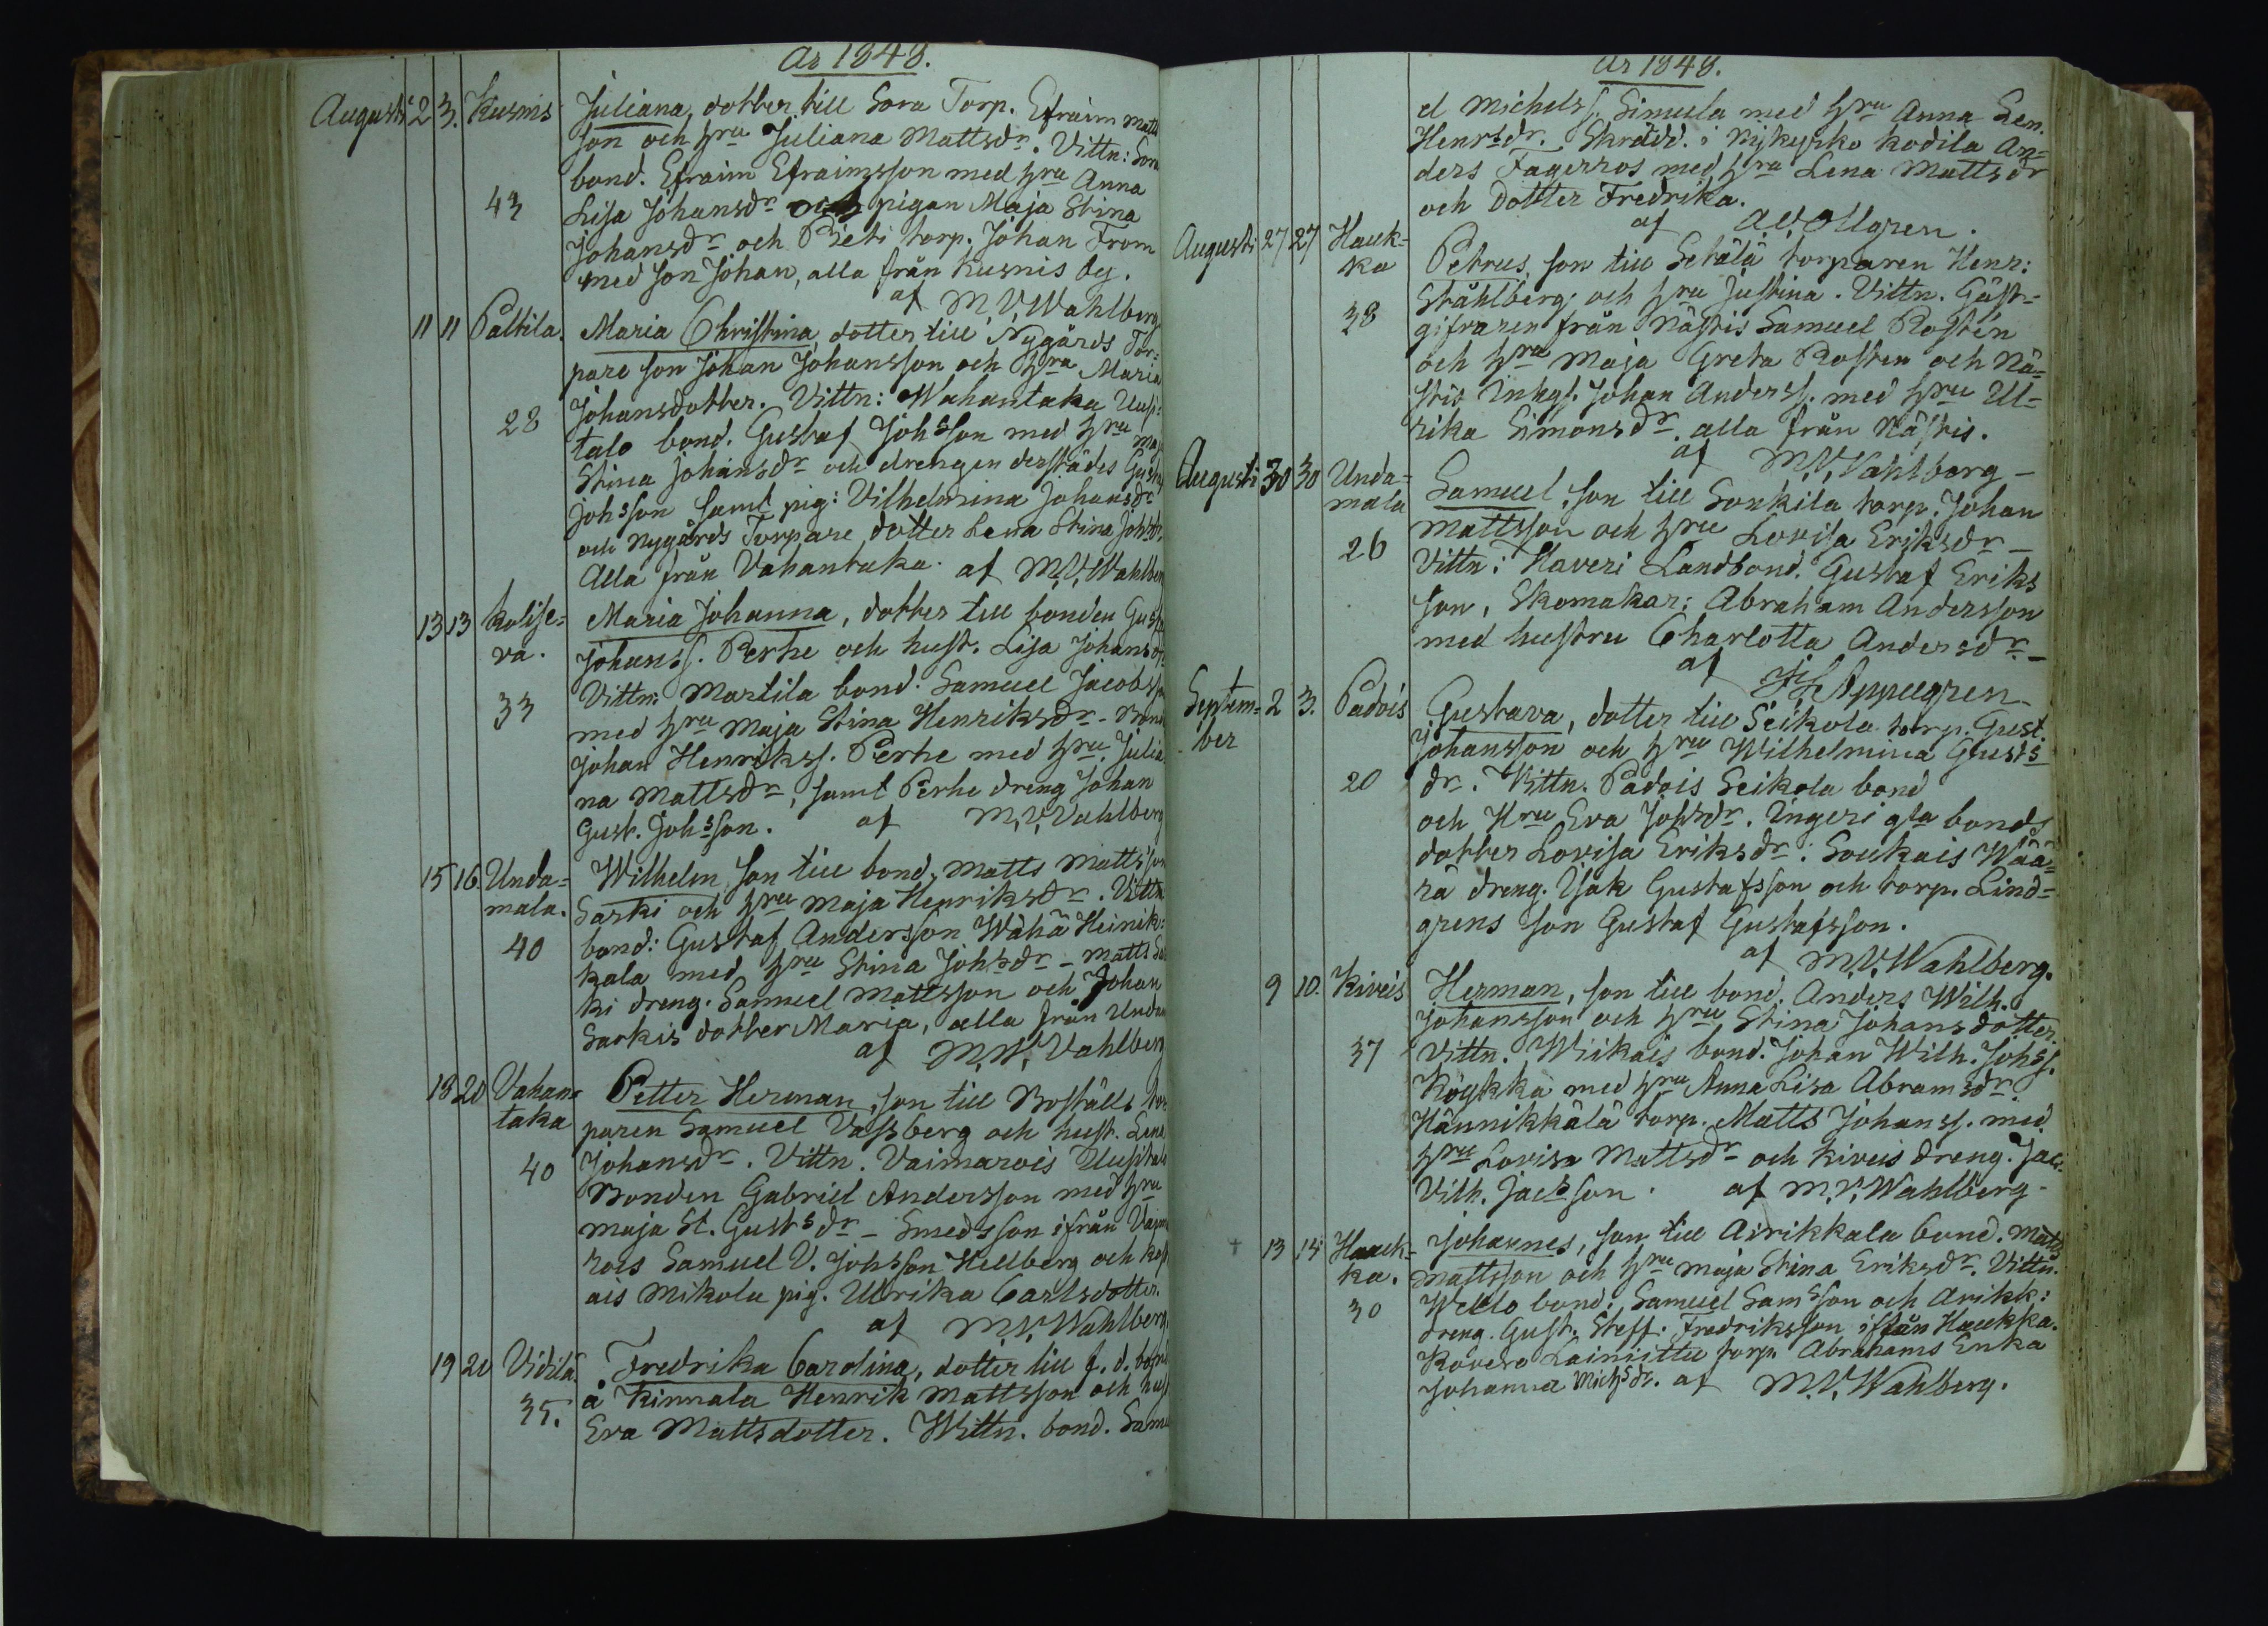 År 1848.
Augusti 2 3. Kusnis Juliana, dotter till Sora Torp. Efraim Matts
son och hru Juliana Mattsdr. Vittn: Sora
bond. Efraim Efraimsson med hru Anna
43 Lisa Johansdr och pigan Maja Stina
Johansdr och Pieti torp. Johan From
med son Johan, alla från Kusnis by.
af M.V. Wahlberg
11 11 Paltila. Maria Christina, dotter till Nygårds Tor-
pare son Johan Johansson och hru Maria
Johansdotter. Vittn: Wahantaka Uusi-
28 talo bond. Gustaf Johsson med hru Maj
Stina Johansdr och drengen derstädes Gustaf
Johsson samt pig: Vilhelmina Johansdr
och Nygårds Torpare dotter Lena Stina Johsdr.
Alla från Vahantaka. af M.V. Wahlberg
13 13 Kolise-
va. Maria Johanna, dotter till bonden Gust
Johanss. Perhe och hust. Lisa Johansdr
33 Vittn: Martila bond. Samuel Jacobsson
med hru Maja Stina Henriksdr - Bond
Johan Henrikss. Perhe med hru Julia-
na Mattsdr, samt Perhe dreng Johan
Gust. Johsson. af M.V. Vahlberg
15 16. Unda-
mala. Wilhelm, son till bond. Matts Mattsson
Sarki och hru Maja Henriksdr. Vittn
40 bond: Gustaf Andersson Wähä Heinik-
kala med hru Stina Johsdr - Matts Sar
ki dreng. Samuel Mattsson och Johan
Sarkis dotter Maria, alla från Unda
af M.V. Vahlberg
18 20 Vahan-
taka Petter Herman, son till Boställs tor
paren Samuel Vassberg och hust. Lena
40 Johansdr. Vittn. Vaimarois Uusitalo
Bonden Gabriel Andersson med hru
Maja St. Gustsdr - Smedsson ifrån Vajma
rois Samuel V. Johsson Hellberg och
ais Mikola pig. Ulrika Carlsdotter.
af M.V. Wahlberg.
19 20 Vidila. Fredrika Carolina, dotter till f. d. bond
35. å Kinnala Henrik Mattsson och hust
Eva Mattsdotter. Wittn. bond. Samu
År 1848.
el Michelss. Simula med hru Anna Len.
Henrsdr. Skrädd. i Nykyrko Kodila An-
ders Fagerros med hru Lena Mattsdr
och Dotter Fredrika.
af
Augusti 27 27 Hauk-
ka Petrus, son till Setälä torparen Henr:
Ståhlberg och hru Justina. Vittn. Gäst-
38 gifvaren från Nästis Samuel Rostén
och hru Maja Greta Rosten och Nä-
stis Inhgs. Johan Anderss. med hru Ul-
rika Simonsdr. alla från Nästis.
af M.V. Vahlberg -
Augusti 30 30 Unda-
mala Samuel, son till Sonkila torp. Johan
Mattsson och hru Lovisa Eriksdr -
26 Vittn: Haveri Landbond. Gustaf Eriks
son, Skomakar: Abraham Andersson
med hustru Charlotta Andersdr -
af Appelgren
Septem-
ber 2 3. Padois Gustava, dotter till Seikola torp. Gust.
Johansson och hru Wilhelmina Gusts
20 dr. Vittn. Padois Seikola bond
och Hru Eva Johsdr. Ingeri gla bonds
dotter Lovisa Eriksdr: Soukais Wää-
rä dreng. Isak Gustafsson och torp. Lind-
grens son Gustaf Gustafsson.
af M.V. Wahlberg.
9 10. Kiveis Herman, son till bond. Anders Wilh.
Johansson och hru Stina Johansdotter.
37 Vittn. Wiikais bond. Johan Wilh. Johss.
Köykkä med hru Anna Lisa Abramsdr.
Hännikkälä torp. Matts Johanss. med
hru Lovisa Mattsdr och Kiveis dreng. Jac.
Vilh. Jacsson. af M.V. Wahlberg -
+ 13 14 Hauk-
ka. Johannes, son till Airikkala bond. Matts
Mattsson och hru Maja Stina Eriksdr. Vittn.
30 Wello bond. Samuel Samsson och Arikk:
dreng. Gust. Steff. Fredriksson ifrån Haukka.
Rovero Lainiittu torp. Abrahams Enka
Johanna Michsdr. af M.V. Wahlberg.